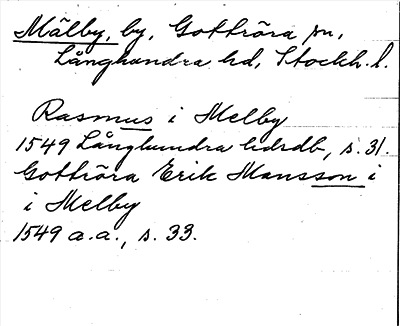 Mälby, by, Gottröra sn,
Långhundra hd, Stockh. l.
Rasmus i Melby
1549 Långhundra hdrdb, s. 31.
Gottröra Erik Mansson i
i Melby
1549 a.a., s. 33.